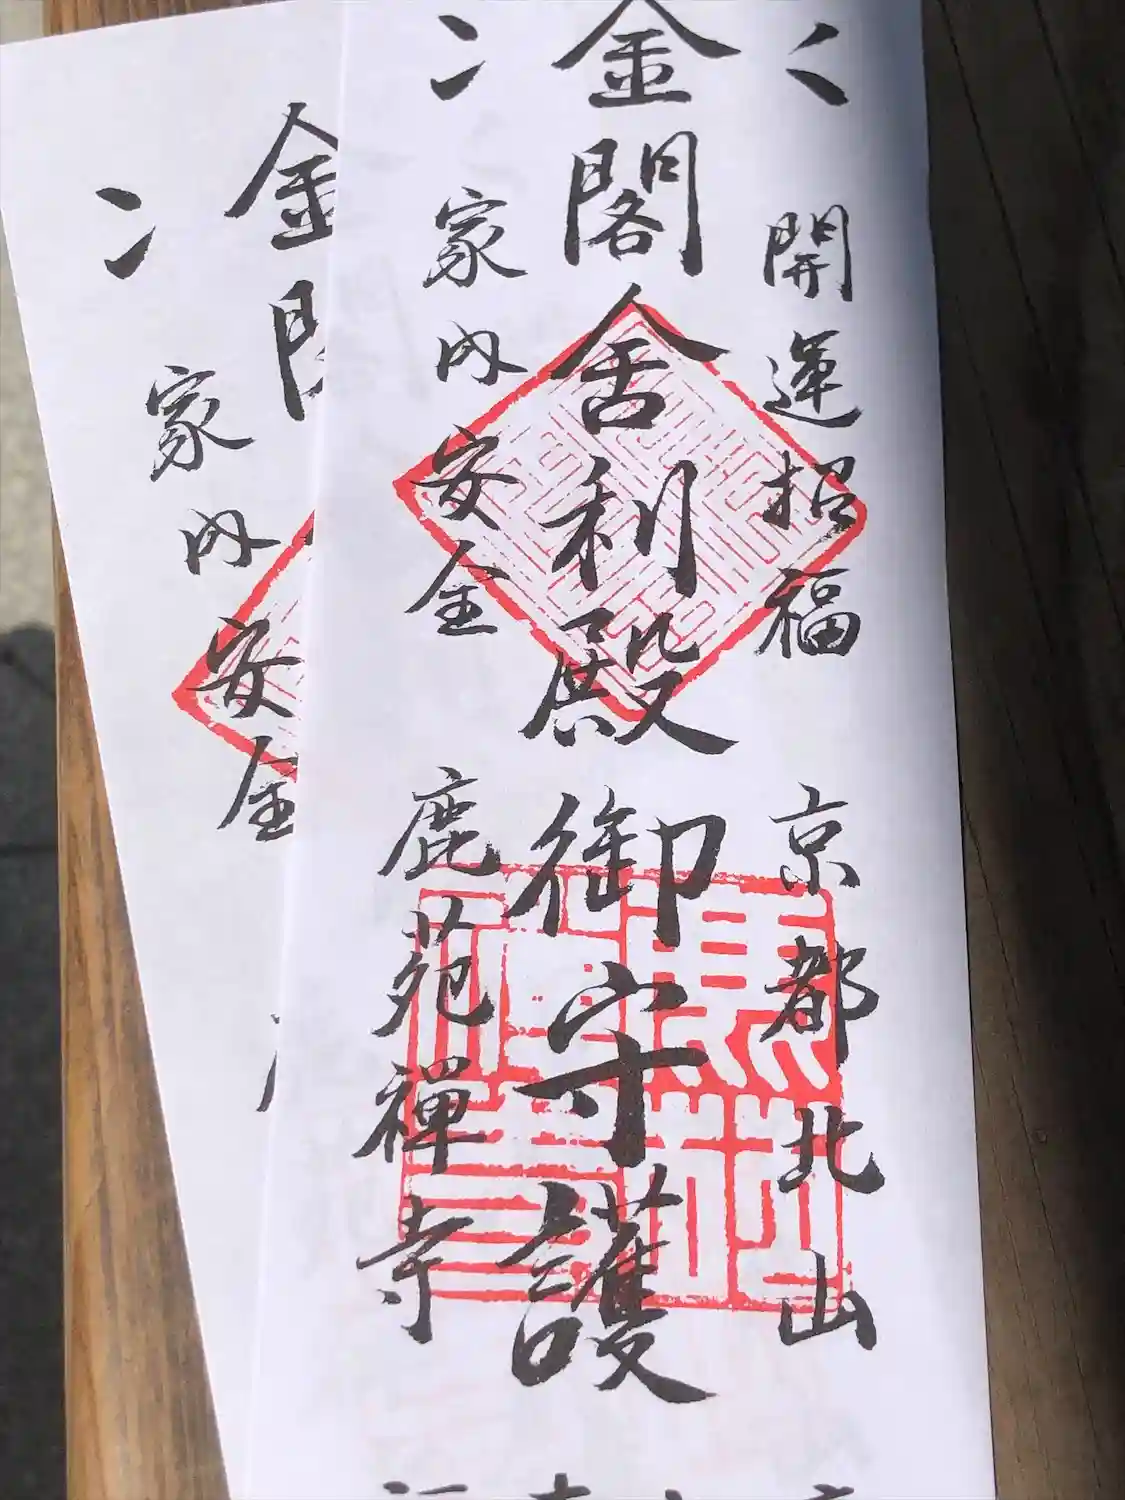 開運招福 京都北山
金閣舎利殿御守護
家内安全 鹿苑禅寺
金閣
家内安全